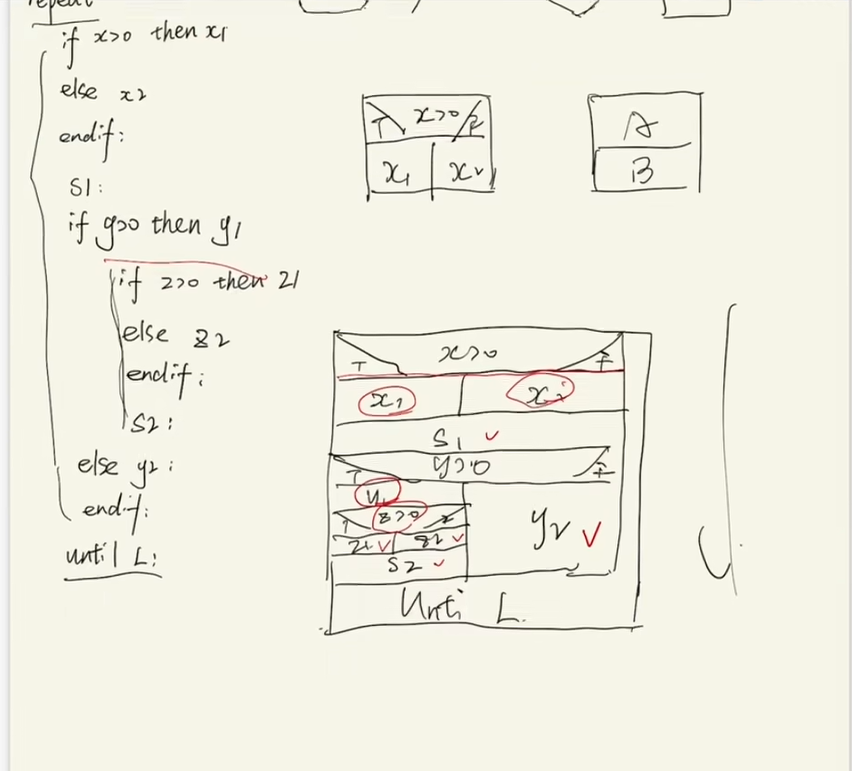 repeat
if x>0 then x1
else x2
endif:
S1:
if y>0 then y1
if z>0 then z1
else z2
endif;
S2:
else y2:
endif:
until L:
T x>0 F
x1 x2
A
B
T x>0 F
x1 x2
S1
T y>0 F
y1
T z>0
z1 z2
S2
y2
Unti L.